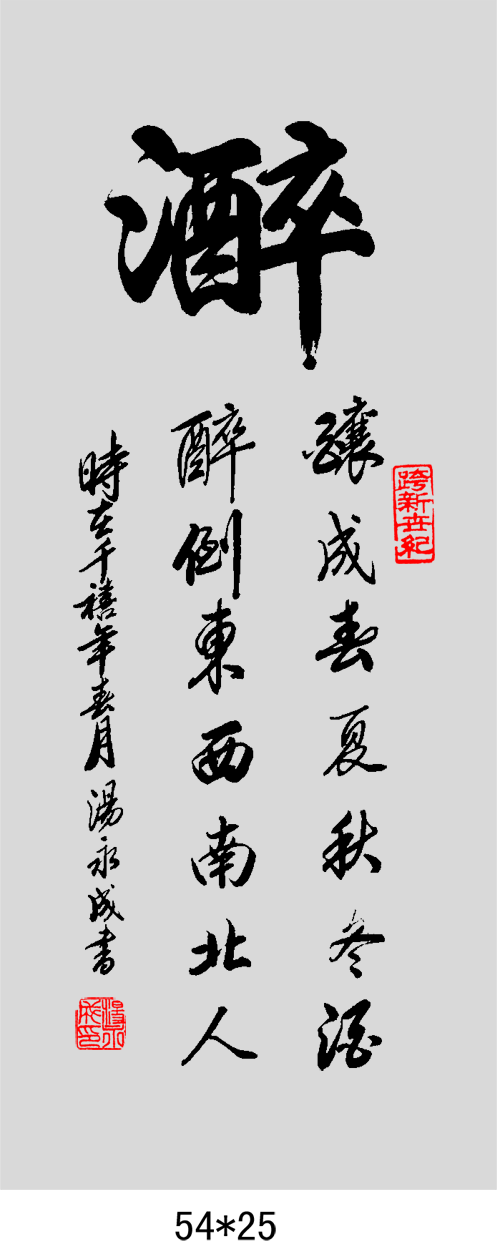 醉
跨新世紀
釀成春夏秋冬酒
醉倒東西南北人
時在千禧年春月湯永成書
湯永成印
54*25